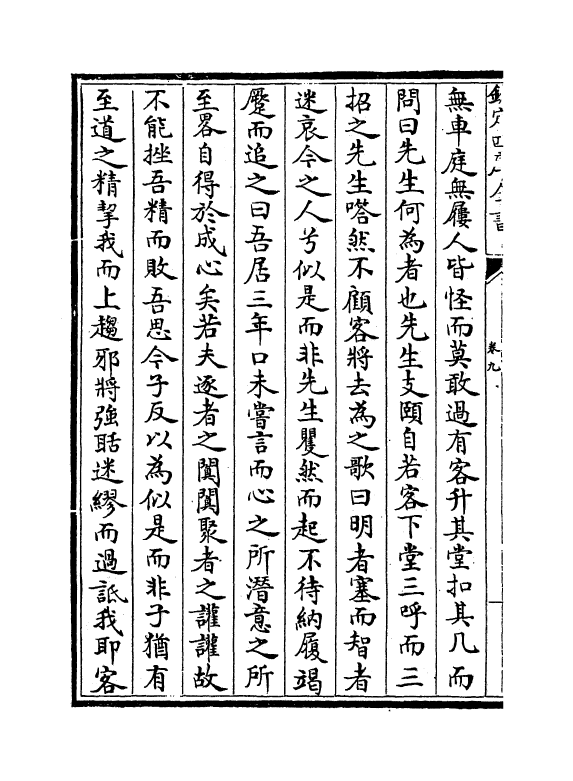 欽定四庫全書
卷九
無車庭無屨人皆怪而莫敢過有客升其堂扣其几而
問曰先生何為者也先生支頤自若客下堂三呼而三
招之先生嗒然不顧客將去為之歌曰明者塞而智者
迷哀今之人兮似是而非先生瞿然而起不待納履竭
蹙而追之曰吾居三年口未嘗言而心之所潛意之所
至畧自得於成心矣若夫逐者之闐闐聚者之讙讙故
不能挫吾精而敗吾思今子反以為似是而非子猶有
至道之精挈我而上趨邪將強聒迷繆而過詆我耶客